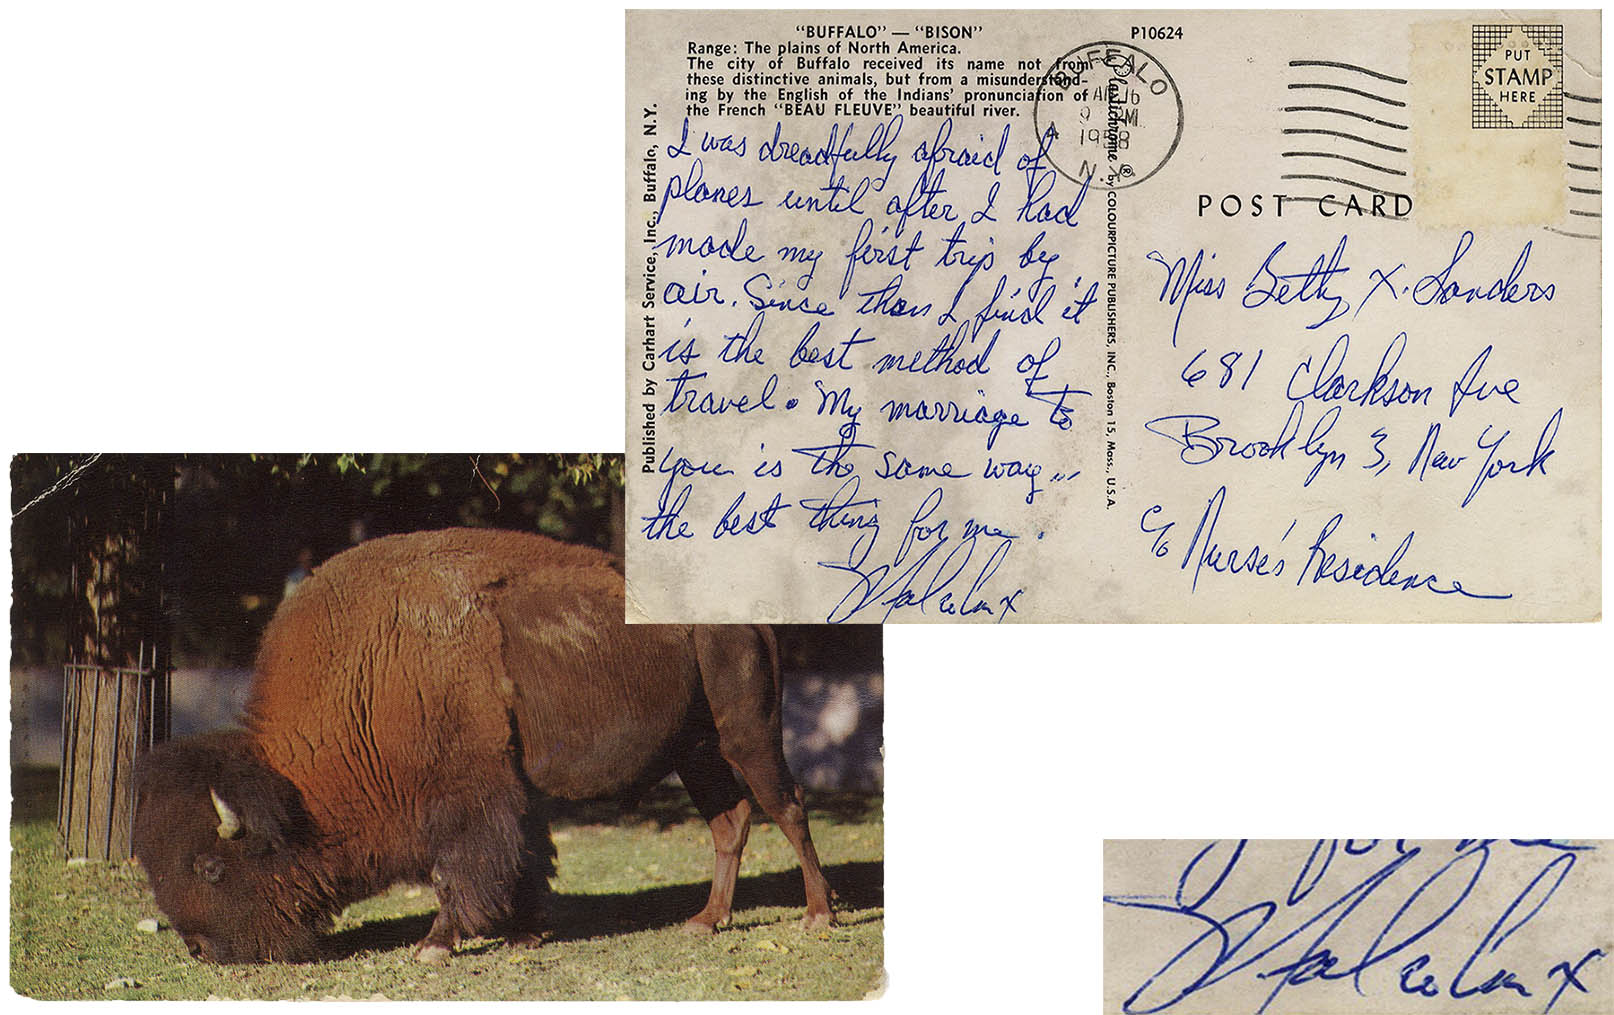 "BUFFALO" — "BISON"
Range: The plains of North America.
The city of Buffalo received its name not from
these distinctive animals, but from a misunderstand-
ing by the English of the Indians' pronunciation of
the French "BEAU FLEUVE" beautiful river.
P10624
BUFFALO
N.Y.
1958
I was dreadfully afraid of
planes until after I had
made my first trip by
air. Since then I find it
is the best method of
travel. My marriage to
you is the same way...
the best thing for me.
Malcolm X
Published by Carhart Service, Inc., Buffalo, N.Y.
Plastichrome ® by COLOURPICTURE PUBLISHERS, INC., Boston 15, Mass., U.S.A.
PUT
STAMP
HERE
POST CARD
Miss Betty X. Sanders
681 Clarkson Ave
Brooklyn 3, New York
c/o Nurse's Residence
for me
Malcolm X